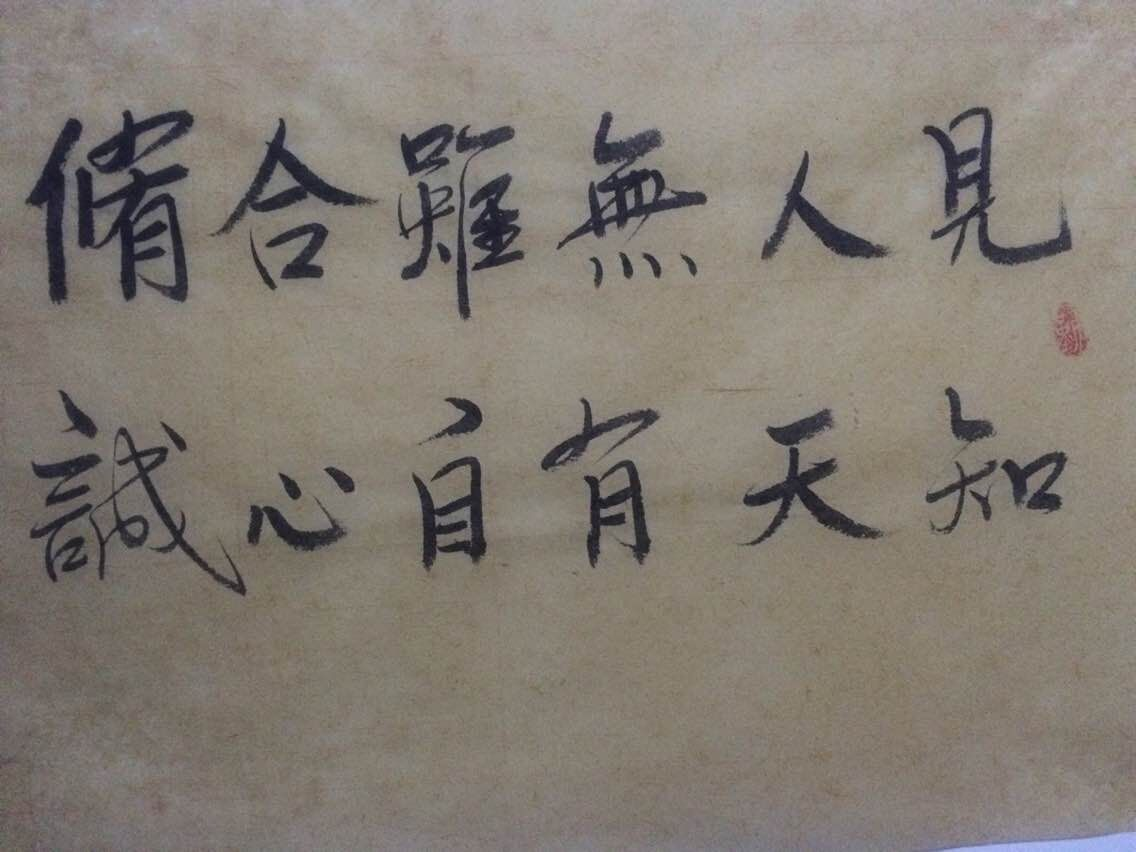 脩合雖無人見
誠心自有天知